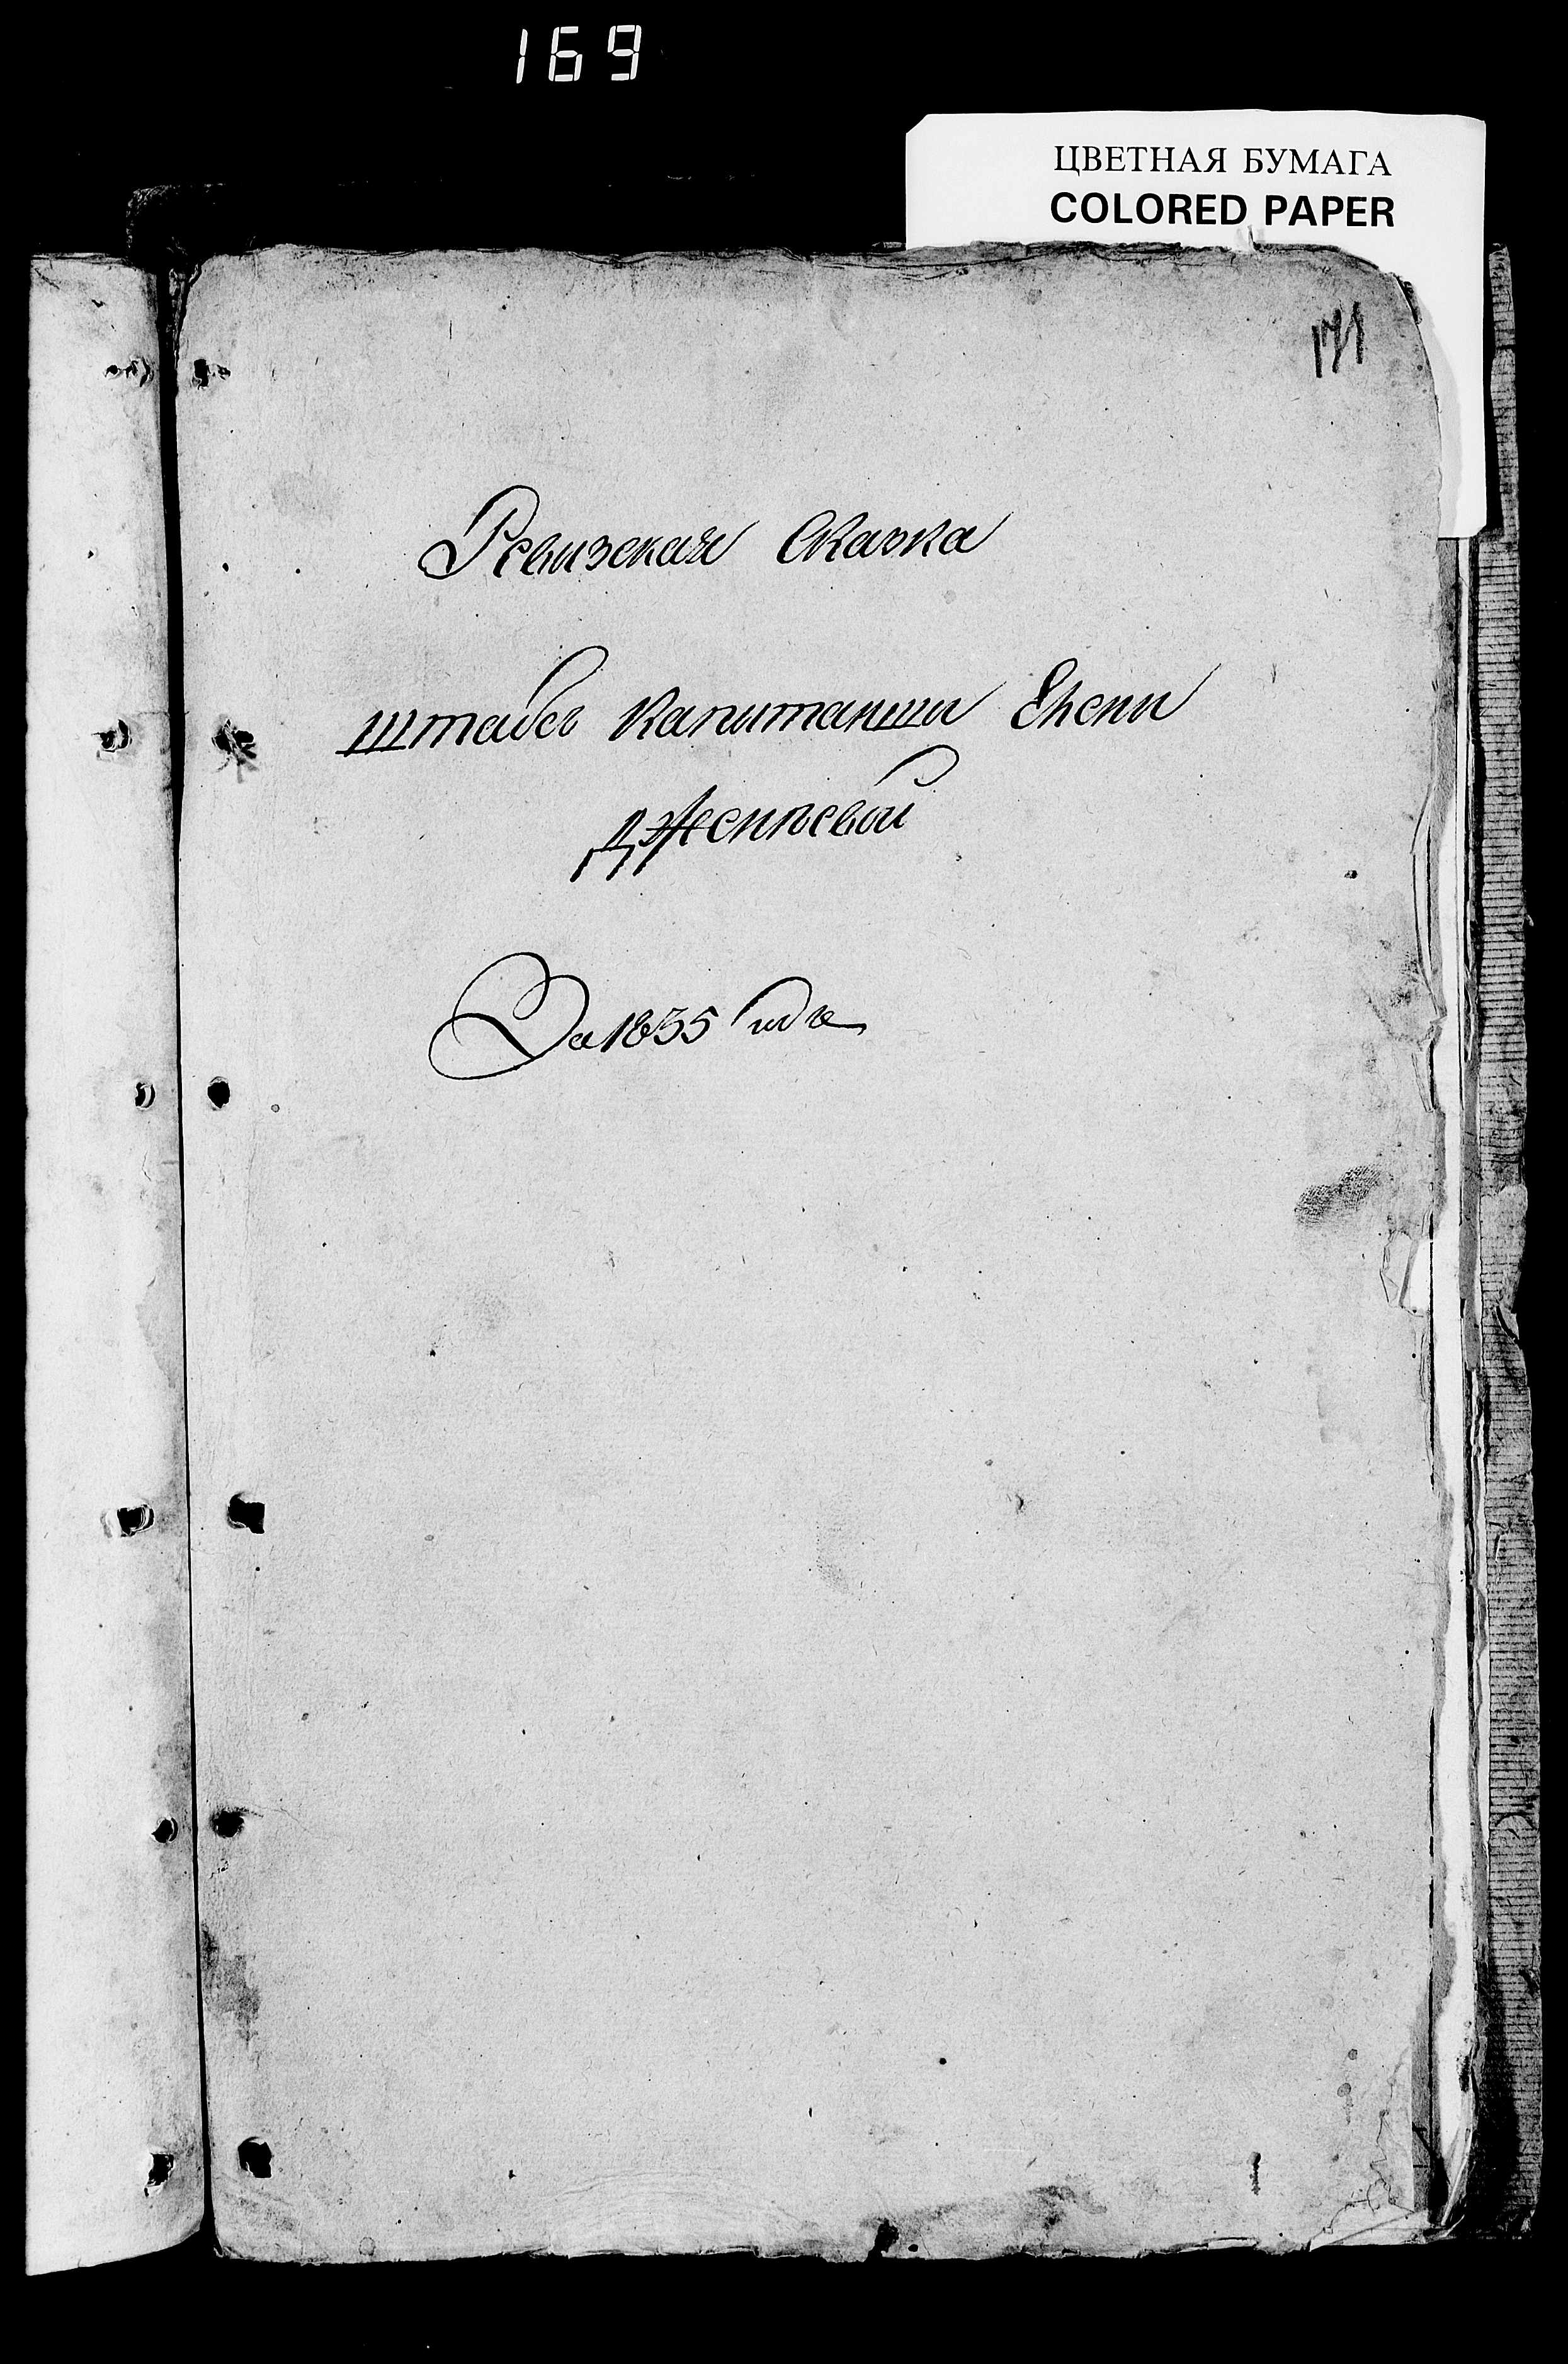 169
ЦВЕТНАЯ БУМАГА
COLORED PAPER
171
Ревизская Сказка
штабсъ капитанши Елены
Дженѣевой
За 1835 годъ